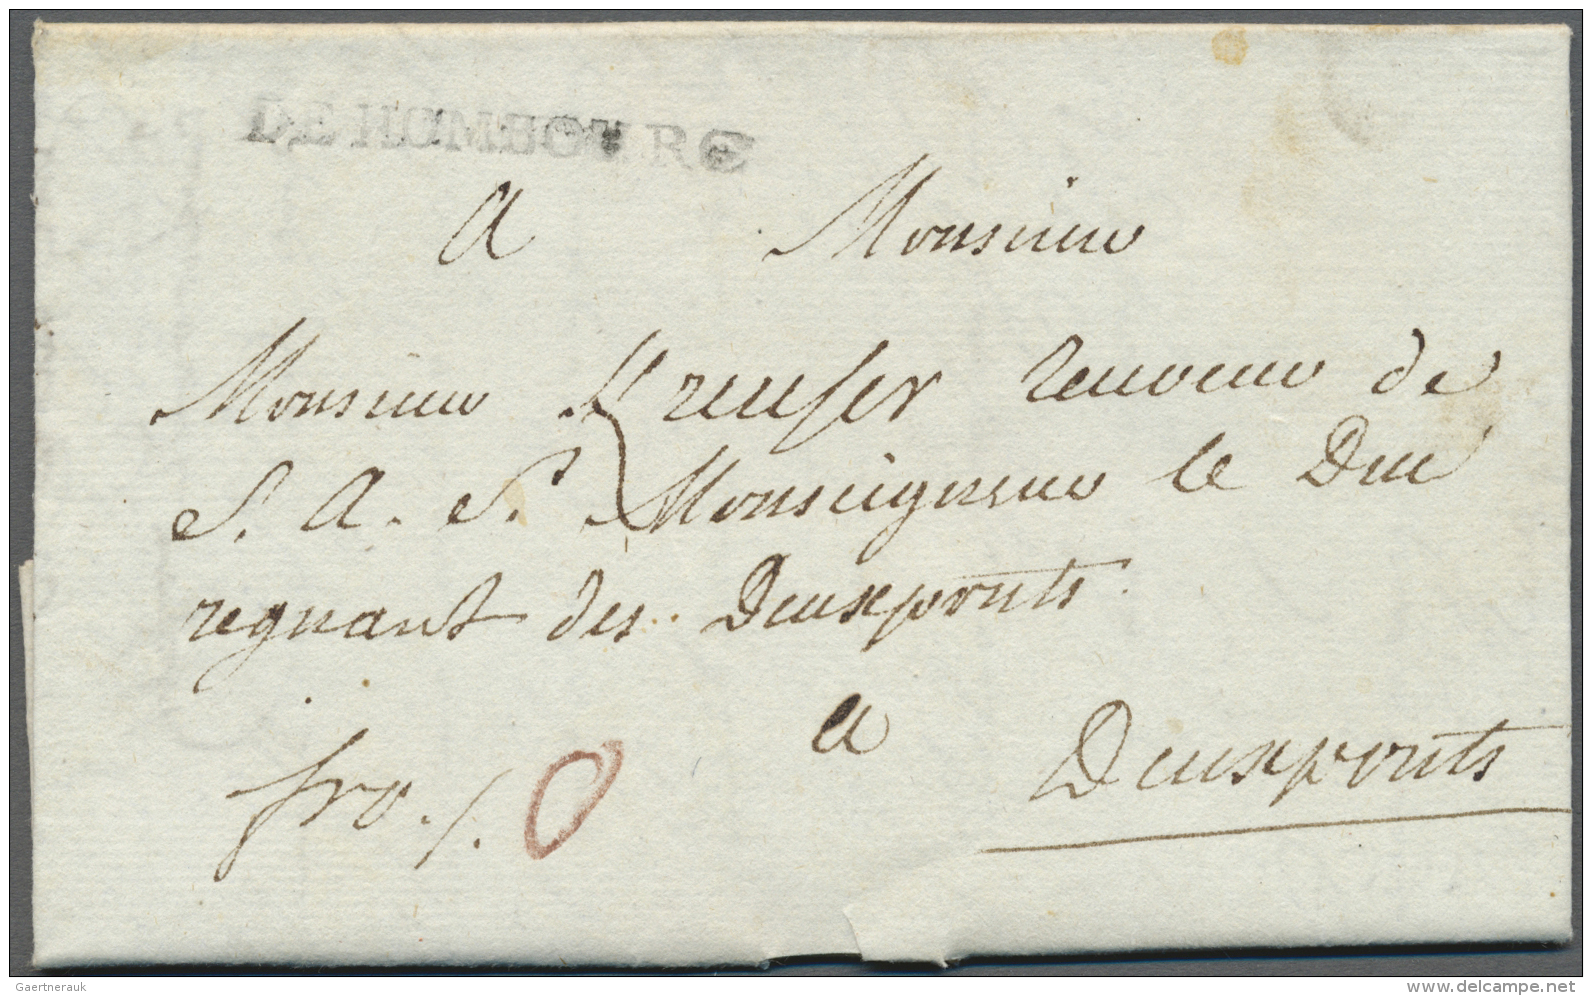 DE HOMBOURG
A Monsieur
Monsieur Kreuser Receveur de
S. A. S. Monseigneur le Duc
regnant des Deuxponts.
a Deuxponts
fro. /.
Gaertnerauk
delcampe.net